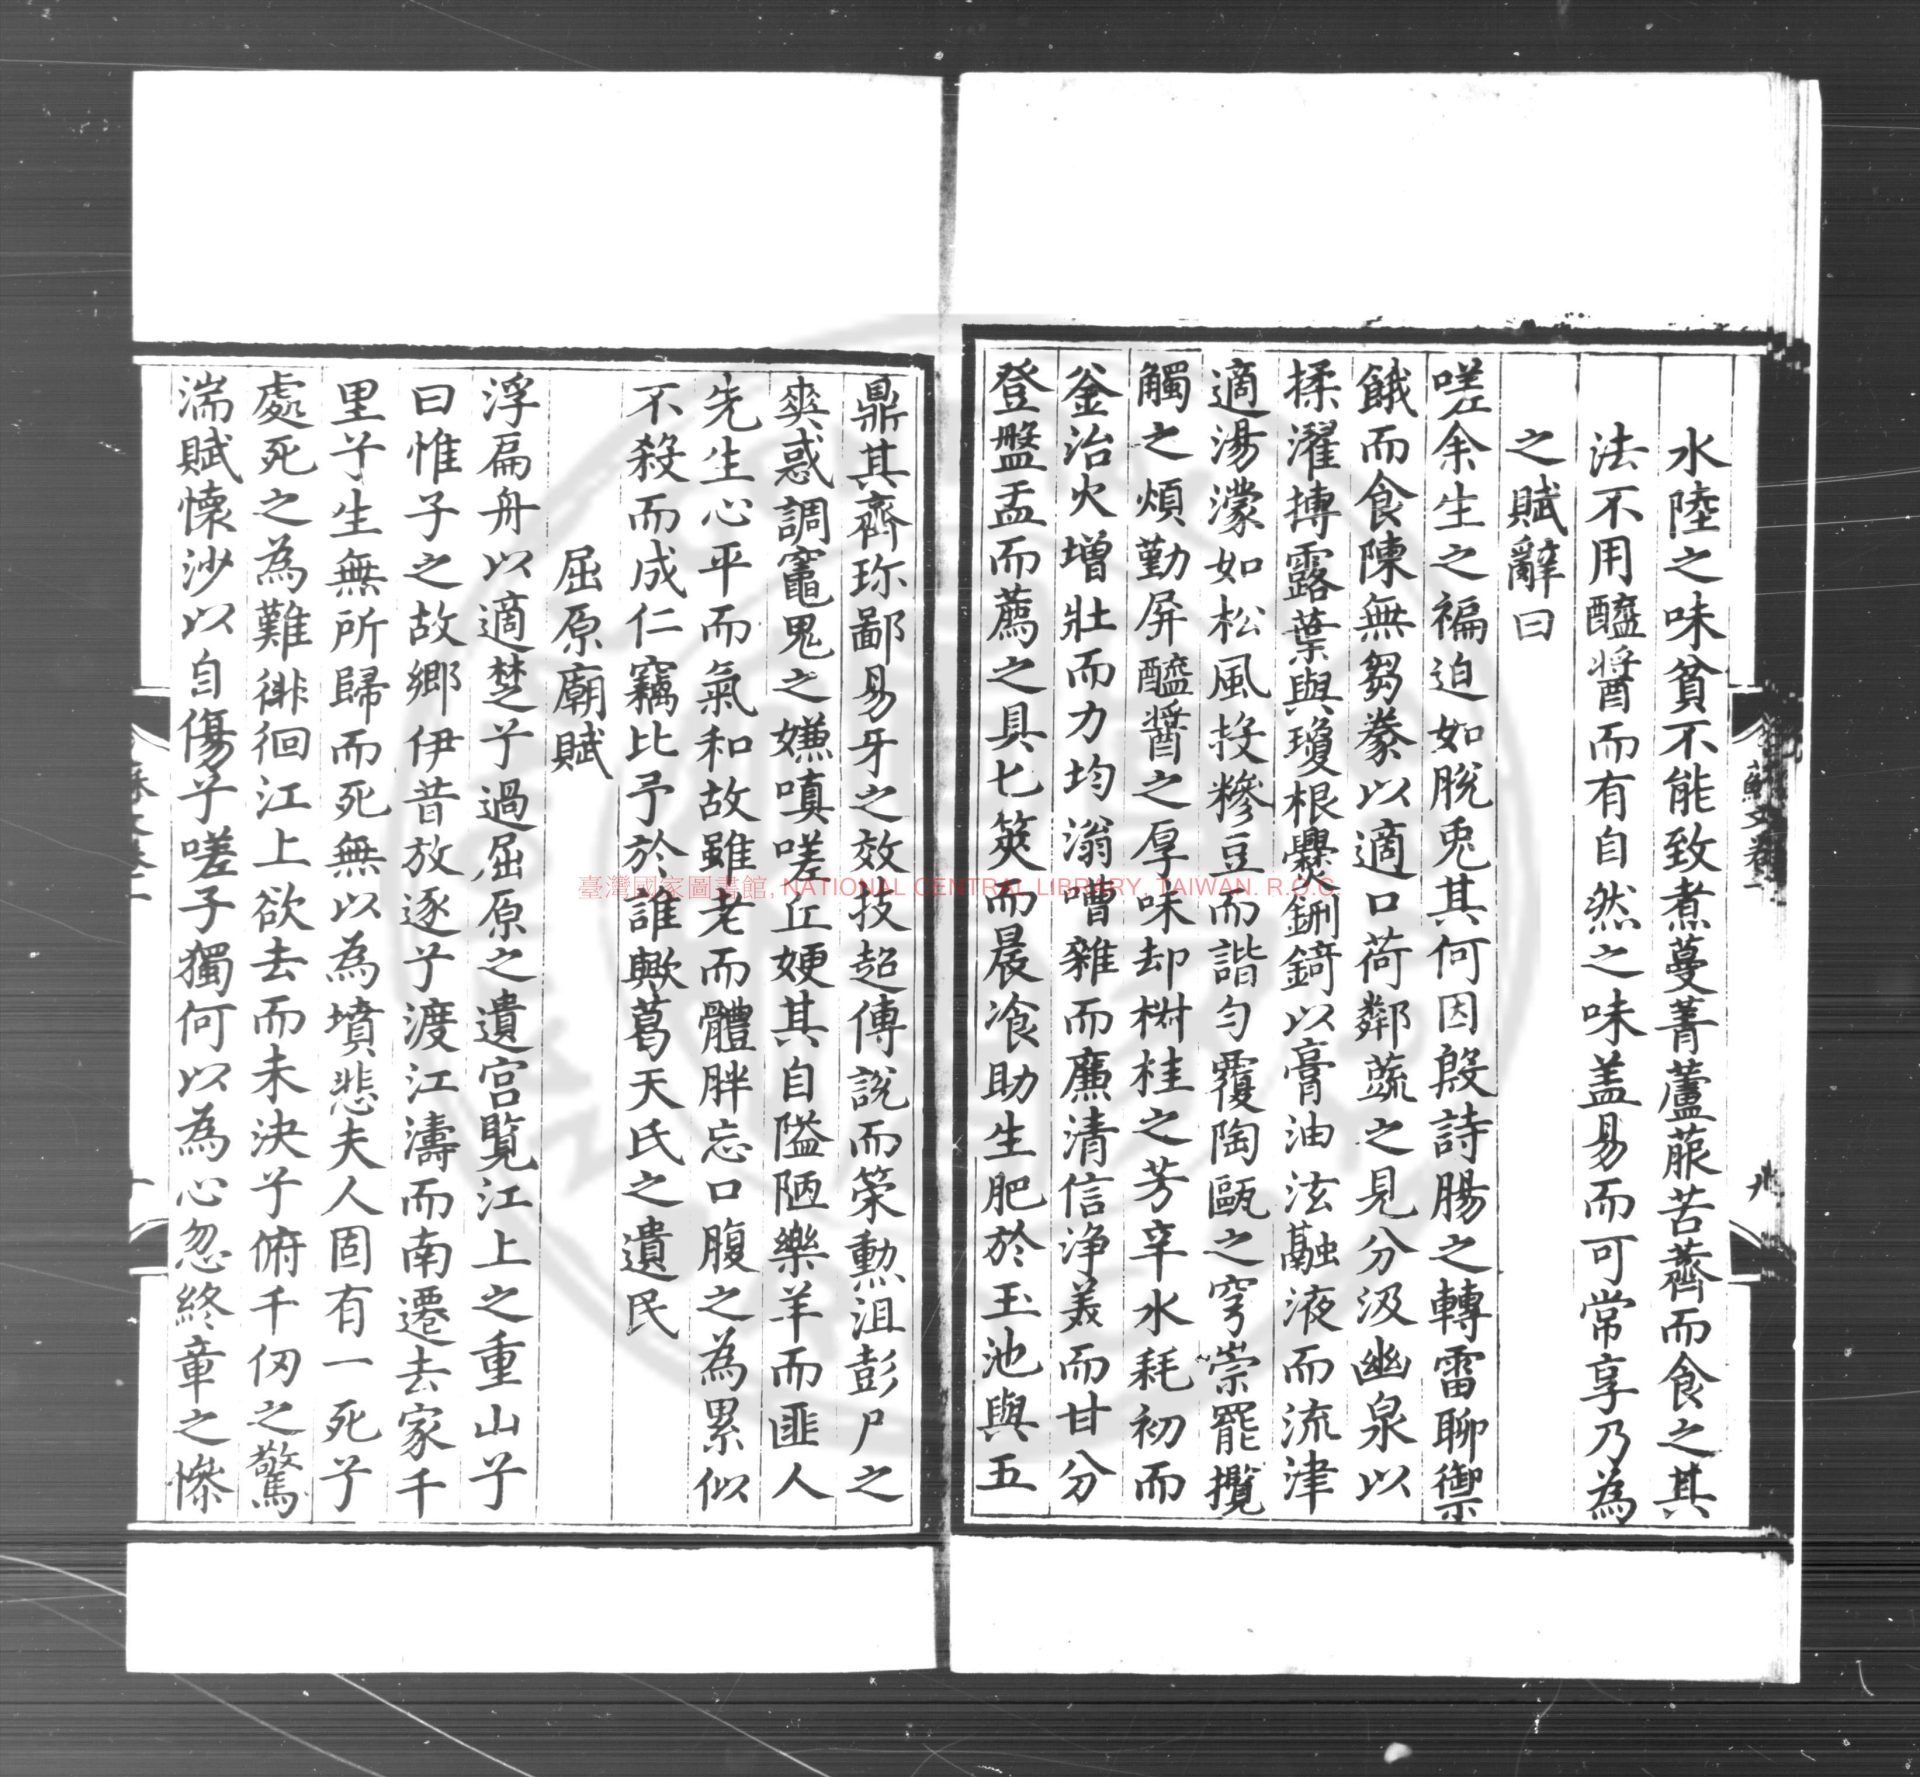 水陸之味貧不能致煮蔓菁蘆菔苦薺而食之其
法不用醯醬而有自然之味盖易而可常享乃為
之賦辭曰
嗟余生之褊迫如脫兎其何因殷詩腸之轉雷聊禦
餓而食陳無芻豢以適口荷鄰蔬之見分汲幽泉以
揉濯摶露葉與瓊根爨鉶錡以膏油泫融液而流津
適湯濛如松風投糝豆而諧勻覆陶甌之穹崇罷攪
觸之煩勤屏醯醬之厚味却椒桂之芳辛水耗初而
釜治火增壯而力均滃嘈雜而廉清信浄美而甘分
登盤盂而薦之具匕筴而晨飡助生肥於玉池與五
鼎其齊珎鄙易牙之效技超傅說而榮勲沮彭尸之
爽惑調竈鬼之嫌嗔嗟丘嫂其自隘陋樂羊而匪人
先生心平而氣和故雖老而體胖忘口腹之為累似
不殺而成仁竊比予於誰歟葛天氏之遺民
屈原廟賦
浮扁舟以適楚兮過屈原之遺宫覧江上之重山兮
曰惟子之故鄉伊昔放逐兮渡江濤而南遷去家千
里兮生無所歸而死無以為墳悲夫人固有一死兮
處死之為難徘徊江上欲去而未決兮俯千仞之驚
湍賦懷沙以自傷兮嗟子獨何以為心忽終章之慘
蘇文卷一
九
臺灣國家圖書館, NATIONAL CENTRAL LIBRARY, TAIWAN. R.O.C